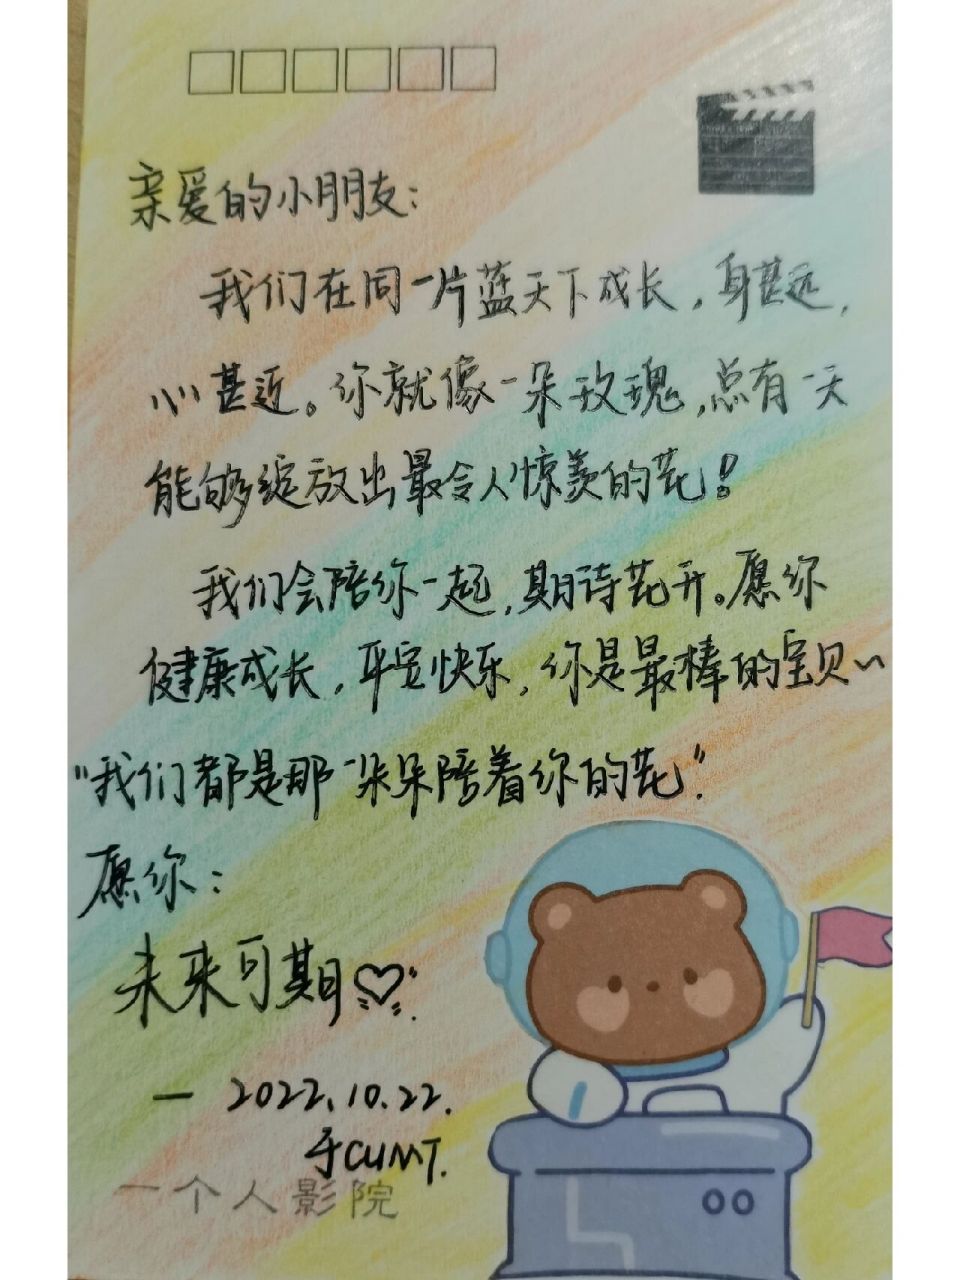 亲爱的小朋友：
我们在同一片蓝天下成长，身甚远，
心甚近。你就像一朵玫瑰，总有一天
能够绽放出最令人惊羡的花！
我们会陪你一起，期待花开。愿你
健康成长，平安快乐，你是最棒的宝贝~
“我们都是那一朵朵陪着你的花”.
愿你：
未来可期♡
— 2022.10.22.
于CUMT.
一个人影院